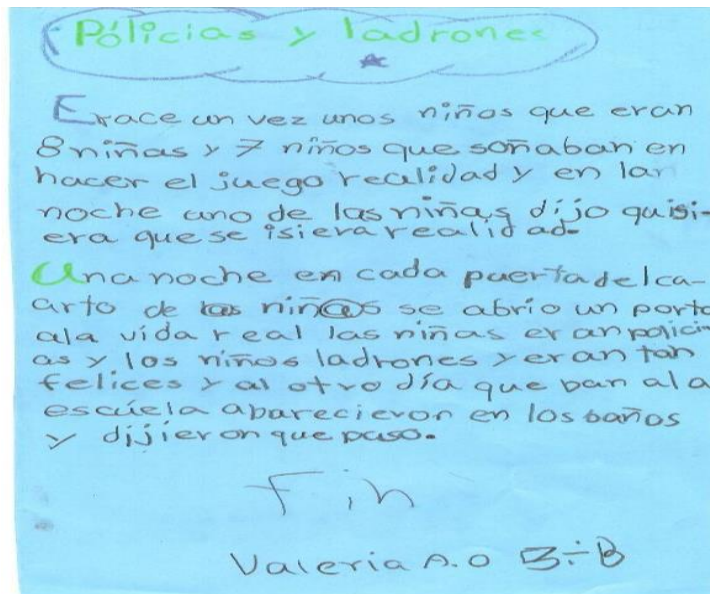 Pólicias y ladrones
Erace un vez unos niños que eran
8 niñas y 7 niños que soñaban en
hacer el juego realidad y en lar
noche uno de las niñas dijo quisi-
era que se isiera realidad.
Una noche en cada puerta del ca-
arto de las niñ@s se abrío un porta
ala vída real las niñas eran polici-
as y los niños ladrones y eran tan
felices y al otro día que ban ala
escúela aparecieron en los baños
y dijieron que paso.
Fin
Valeria A.O 3÷B